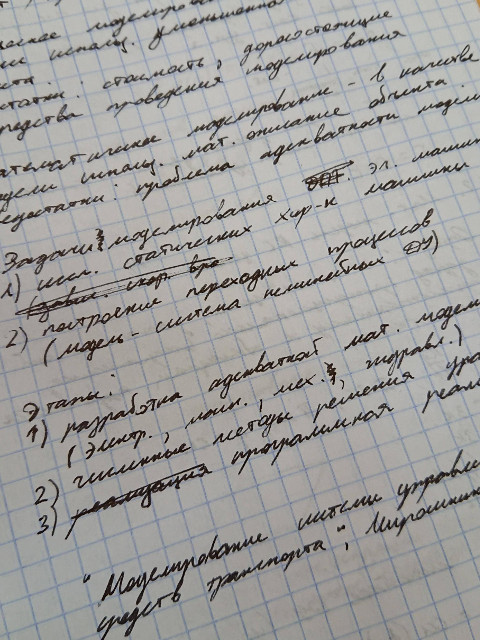 ческое моделиров
испольᴣ. уменьшенной
статки: стоимость, дорогостоящие
средства проведения моделирования
атематическое моделирование - в качестве
модели использ. мат. описание объекта
недостатки: проблема адекватности модели
Задачи моделирования эл. машин
1) иссл. статических хар-к машины
2) построение переходных процессов
(модель - система нелинейных ДУ)
Этапы:
1) разработка адекватной мат. модели
(электр., магн., мех., гидравл.)
2) численные методы решения ура
3) реализация программная реали
"Моделирование систем управле
средств транспорта", Мирошник